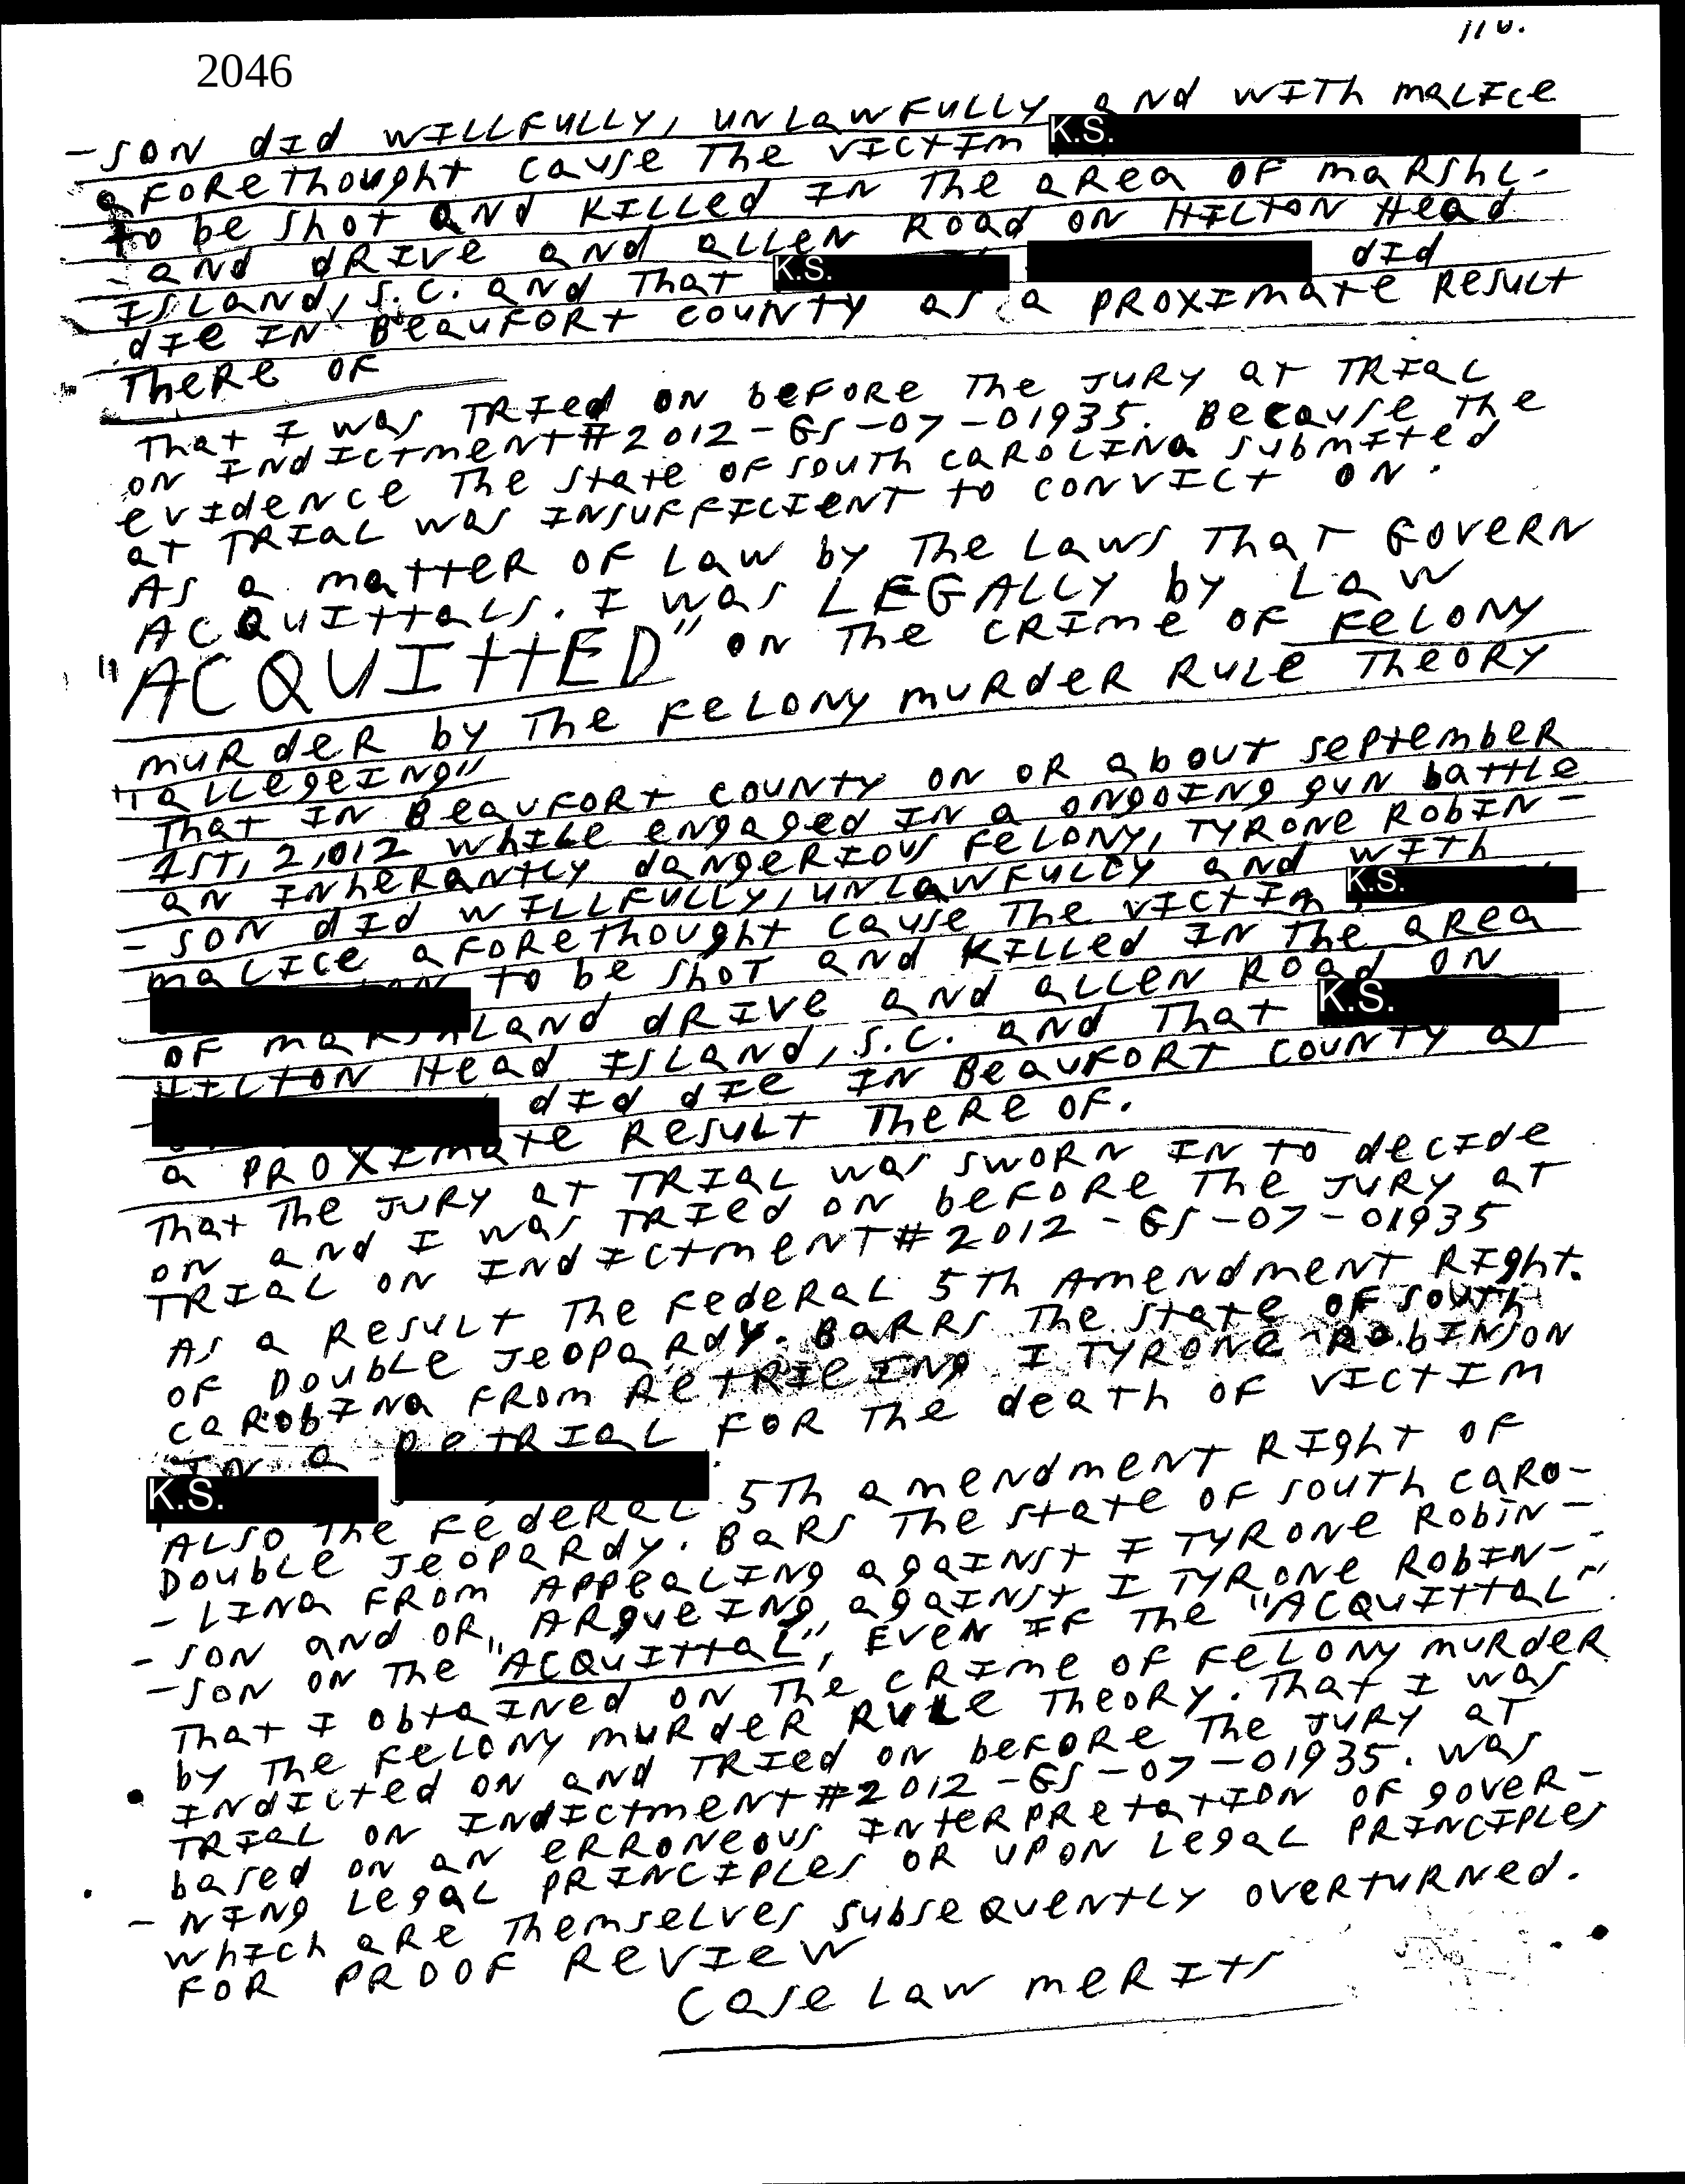 110.
2046
-SON did WILLFULLY, UNLAWFULLY and WITH maLICe
aFOREThought cause The VICTIM K.S.
to be shot and KILLed IN The aRea OF maRshL-
-and dRIVe and aLLEN Road ON HILTON Head
ISLand, S.C. and That K.S. did
dIe IN BeauFORt COUNTY as a PROXImate Result
TheRe OF
That I was TRIed ON beFORe The JURY aT TRIaL
ON INdICTmeNT#2012-GS-07-01935. Because The
evIdeNce The State OF SOUTH CAROLINa submITed
aT TRIaL was INSUFFICIENT to CONVICT ON.
As a matter OF Law by The Laws ThaT GOVERN
ACQUITtaLS. I was LEGALLY by Law
"ACQUITtED" ON The CRIme OF FeLONY
muRdeR by The FeLONY muRdeR RULe TheORY
"aLLegeINg"
That IN BeauFORt COUNTY ON OR about September
1ST, 2,012 whILe eNgaged IN a ONgOINg gUN battLe
aN INheRaNtLy daNgeRIOUS FeLONY, TYRONe ROBIN-
-SON did WILLFULLY, UNLAWFULLY and WITH
maLICe aFOREThought cause The VICTIM K.S.
to be shOT and KILLed IN The aRea
OF maRshLaNd dRIVe and aLLeN ROad ON
HILTON Head ISLaNd, S.C. and That K.S.
did dIe IN BeauFORT COUNTY as
a PROXImate ResuLt TheRe OF.
That The JURY aT TRIaL was SWORN IN TO decIde
ON and I was TRIed ON beFORe The JURY aT
TRIaL ON INdICtmeNT#2012-GS-07-01935
As a ResuLt The FedeRaL 5Th AmeNdmeNT RIghT.
OF DOUbLe JeOPaRdy. BaRRs The State OF SOUTh
CaRObINa FROm ReTRIeINg I TYRONe RObINSON
IN a ReTRIaL FOR The death OF VICTIM
K.S.
ALSO The FedeRaL 5Th ameNdmeNT RIghT OF
DOUbLe JeOPaRdy. BaRs The State OF SOUTh CaRO-
-LINa FROm APPeaLINg agaINst I TYRONe RObIN-
-SON aNd OR, ARgueINg agaINst I TYRONe RObIN-
-SON ON The "ACQUITtaL", EVeN IF The "ACQUITtaL"
That I ObtaINed ON The CRIme OF FeLONY muRdeR
by The FeLONY muRdeR RULe TheORY. That I was
INdIcted ON aNd TRIed ON beFORe The JURY aT
TRIaL ON INdICtmeNT#2012-GS-07-01935. was
based ON aN eRRONeOUS INteRPRetatION OF gOveR-
-NINg LegaL PRINCIPLes OR UPON LegaL PRINCIPLes
whIch aRe ThemseLves subsequeNtLy OveRtuRNed.
FOR PROOF RevIew
Case Law meRIts